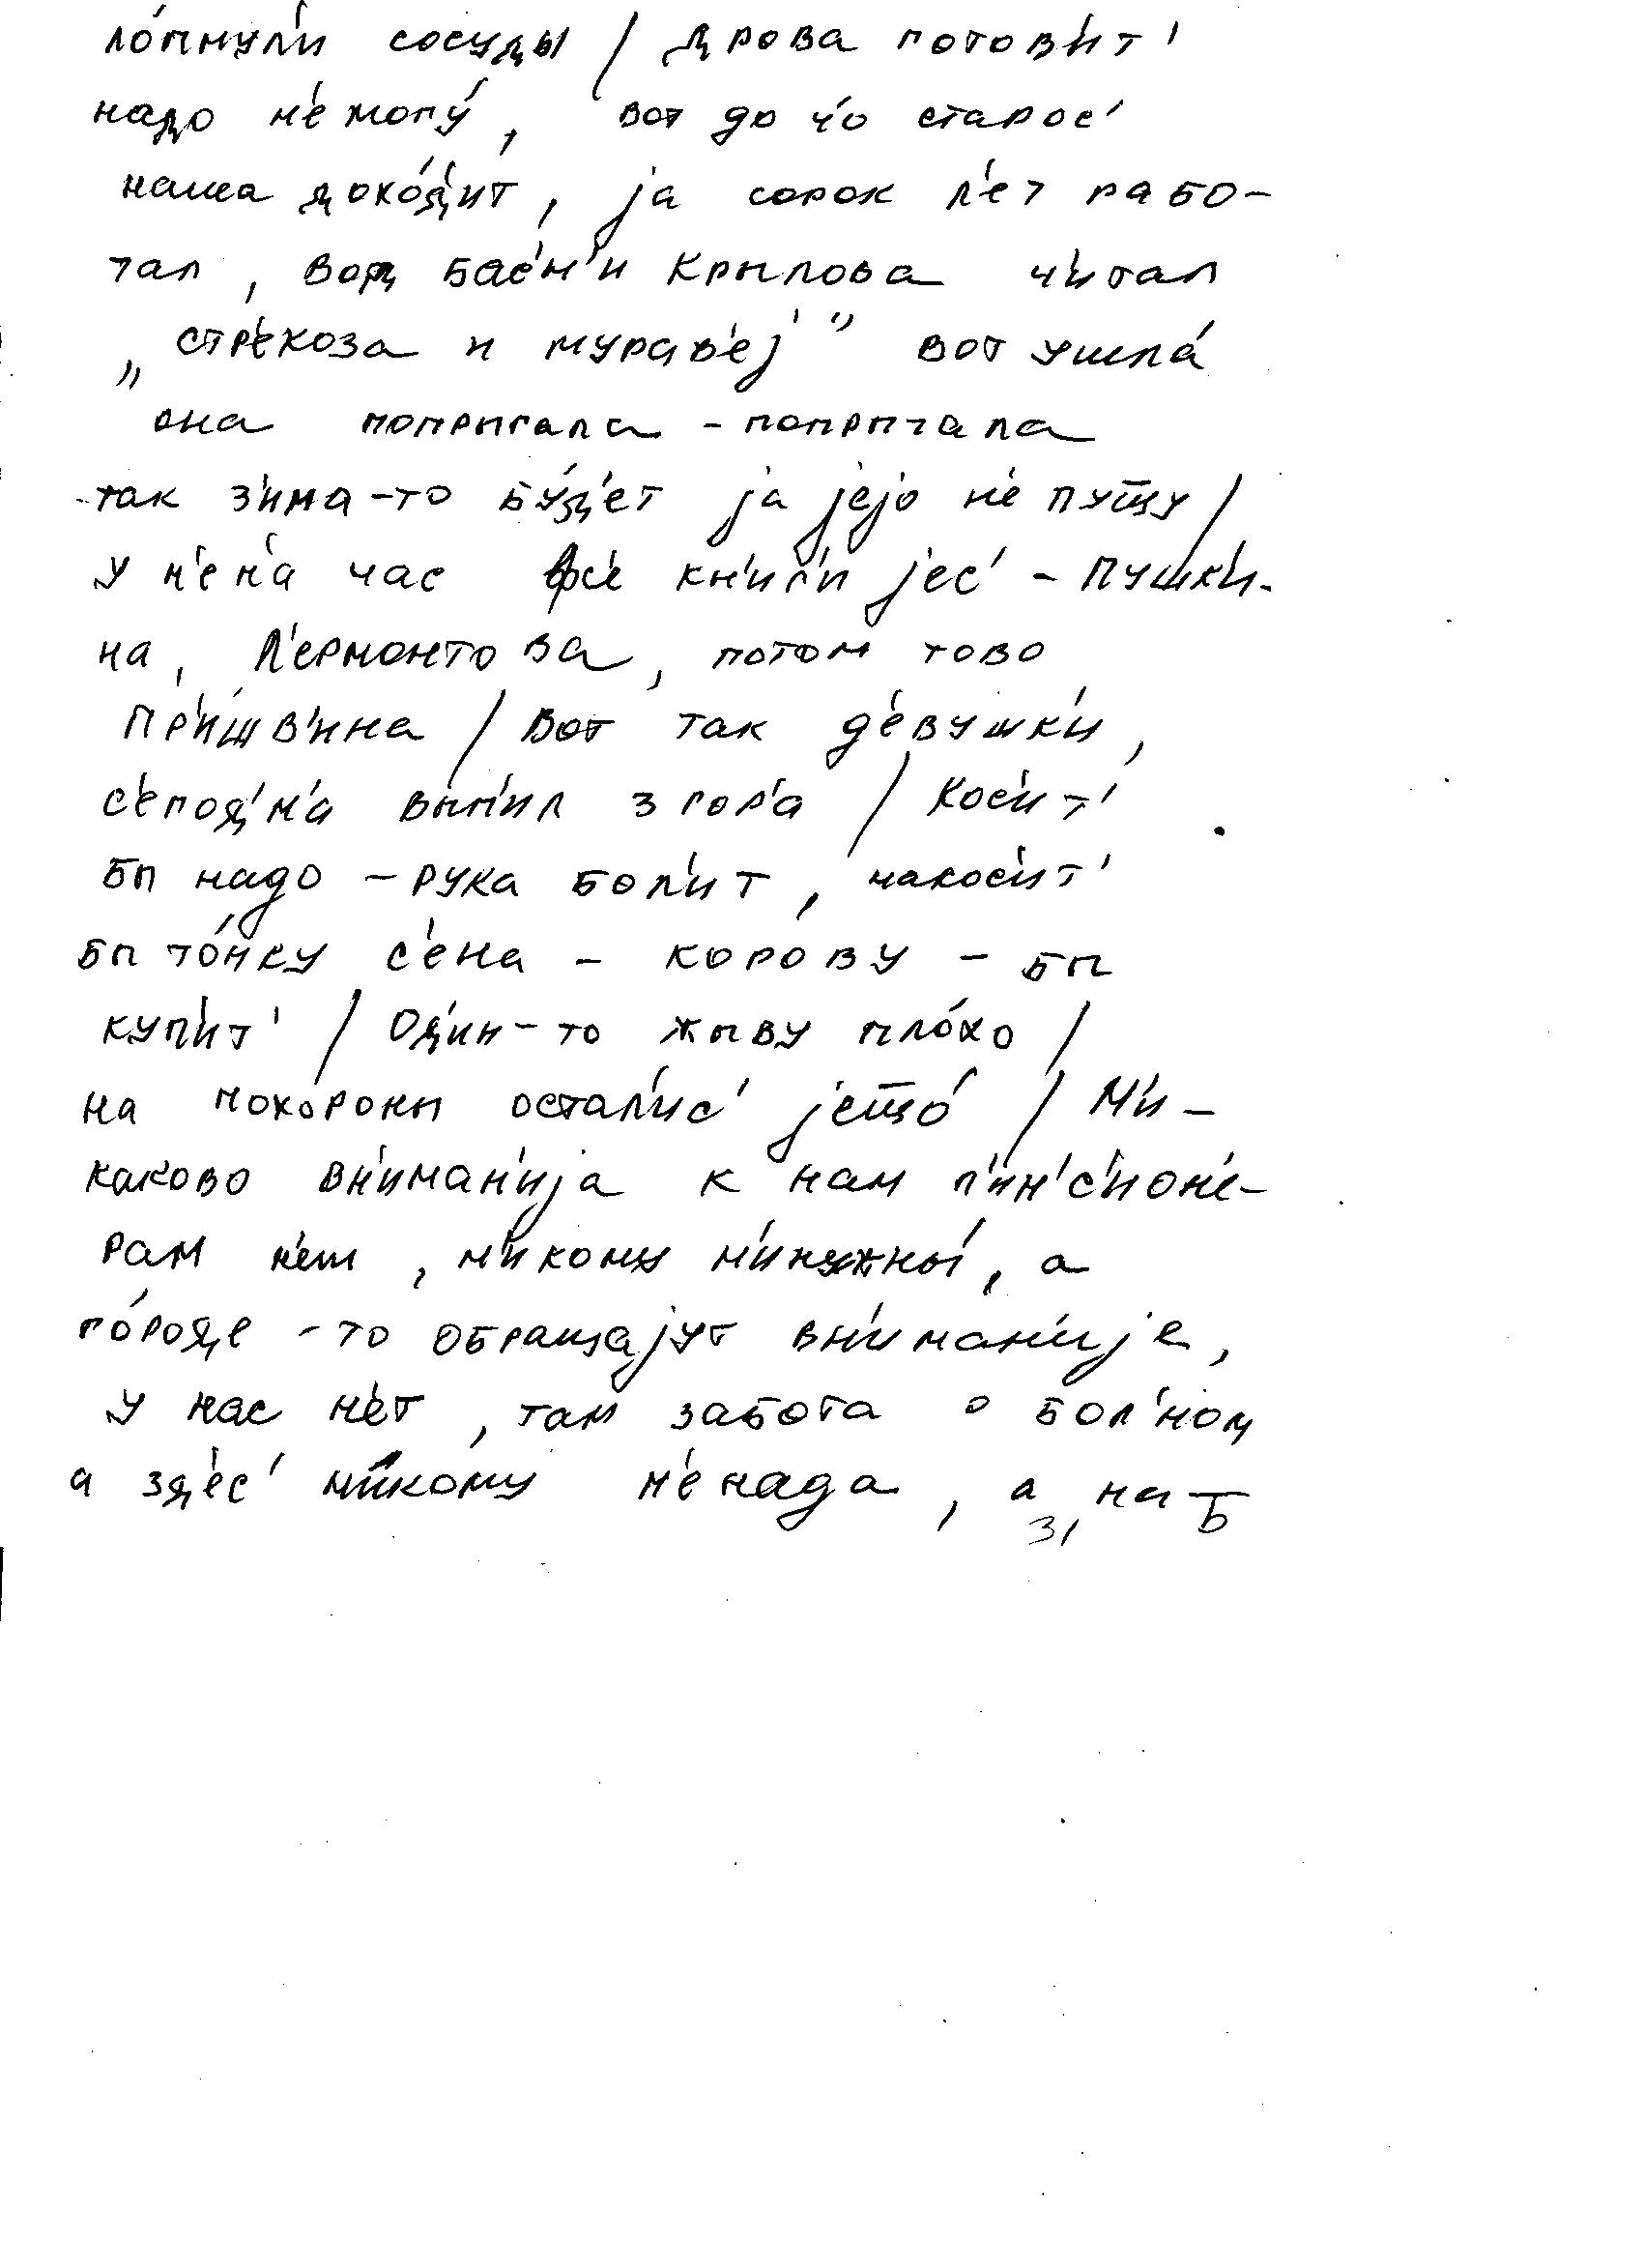 ло́пнул'и сосуды / дрова готов'ит'
надо н'е могу́, вот до ч'о старос'
наша дохо́д'ит, jа сорок л'ет рабо-
тал, вод бас'н'и Крылова ч'итал
„стр'екоза и мурав'еj" вот ушла́
она попрыгала - попрыгала
так з'има-то бу́д'ет jа jеjо н'е пущу /
У н'ен'а час фс'е кн'иг'и jес' - Пушк'и-
на, Л'ермонтова, потом тово
Пр'ишв'ина / Вот так д'евушк'и,
с'егод'н'а вып'ил з гор'а / Кос'ит'
бы надо - рука бол'ит, накос'ит'
бы то́нку с'ена - коро́ву - бы
куп'ит' / Од'ин-то жыву пло́хо /
на похороны остал'ис' jещо́ / Н'и-
каково вн'иман'иjа к нам п'ин'с'ион'е-
рам н'ет, н'икому н'инужны́, а
го́род'е - то обращаjут вн'иман'иjе,
у нас н'ет, там забота о бол'ном
а зд'ес' н'икому н'енада, а на
31 Б